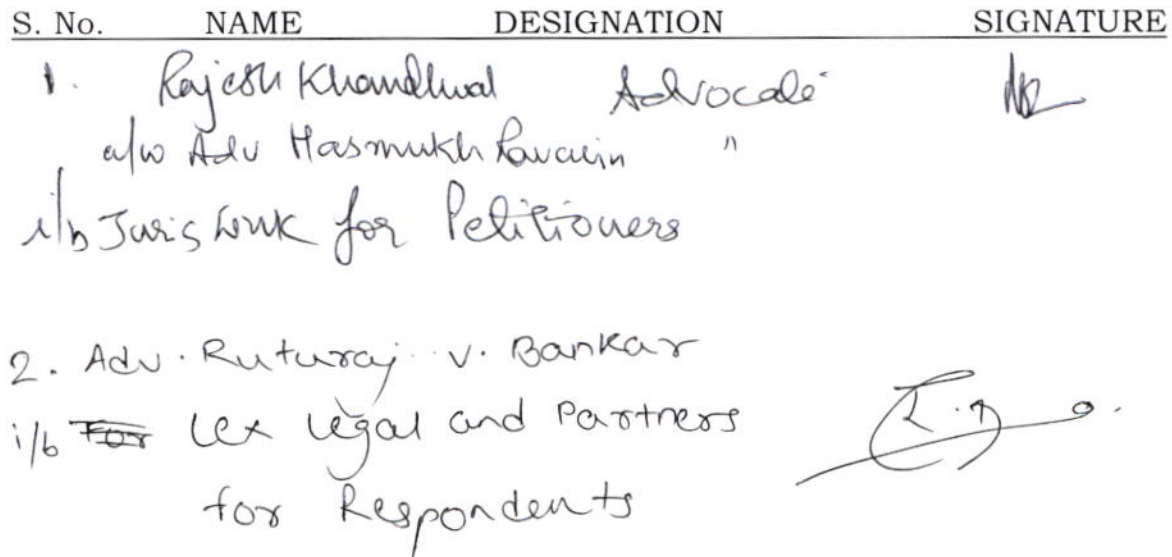 S. No. NAME DESIGNATION SIGNATURE
1. Rajesh Khandelwal Advocate
a/w Adv Hasmukh Ravaria "
i/b Juris Link for Petitioners
2. Adv. Ruturaj V. Bankar
i/b For Lex Legal and Partners
for Respondents